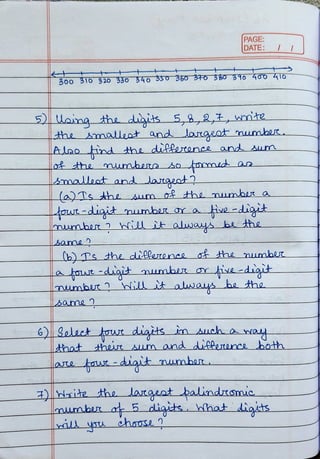 PAGE:
DATE: / /
300 310 320 330 340 350 360 370 380 390 400 410
5) Using the digits 5,8,2,7, write
the smallest and largest number.
Also find the difference and sum
of the numbers so formed as
smallest and largest?
(a) Is the sum of the number a
four-digit number or a five-digit
number? Will it always be the
same?
(b) Is the difference of the number
a four-digit number or five-digit
number? Will it always be the
same?
6) Select four digits in such a way
that their sum and difference both
are four-digit number.
7) Write the largest palindromic
number of 5 digits. What digits
will you choose?